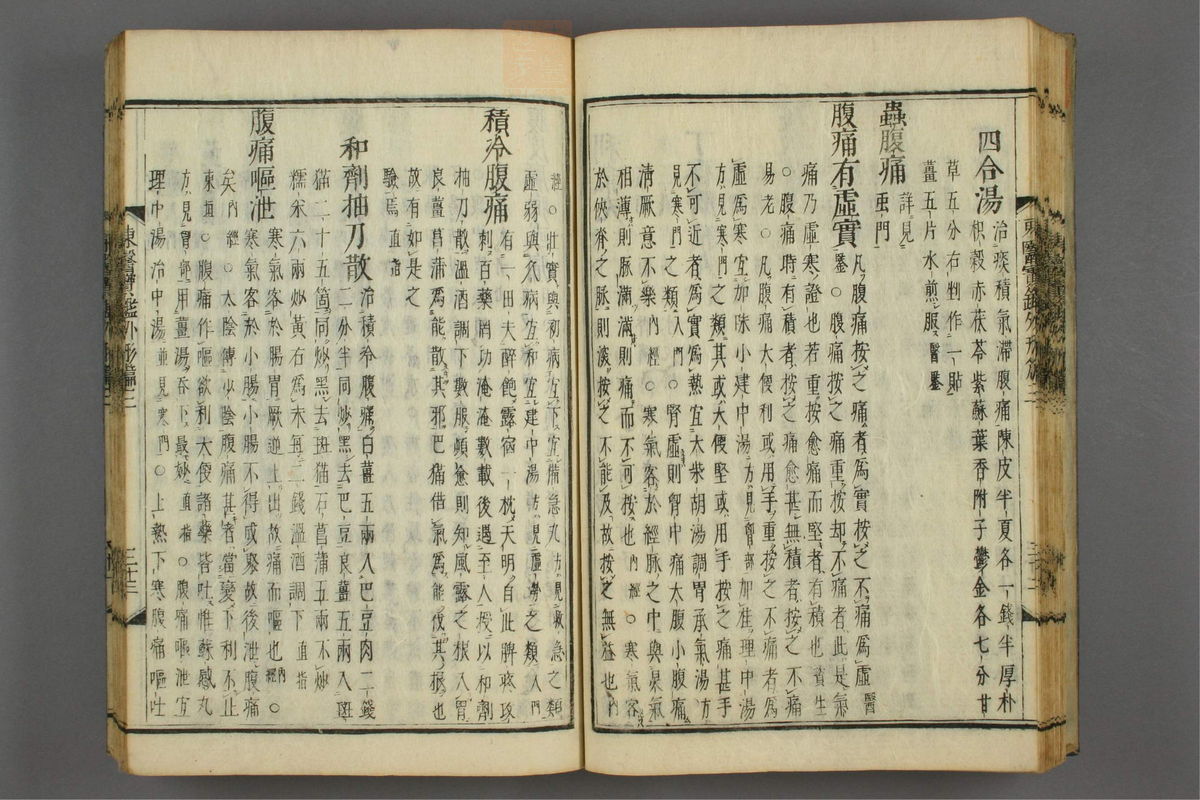 四合湯 治痰積氣滯腹痛陳皮半夏各一錢半厚朴
枳殼赤茯苓紫蘇葉香附子鬱金各七分甘
草五分右剉作一貼
薑五片水煎服 醫鑒
蟲腹痛 詳見虫門
腹痛有虛實 凡腹痛按之痛者爲實按之不痛爲虛 醫
鑒○腹痛按之痛重按却不痛者此是氣
痛乃虛寒證也若重按愈痛而堅者有積也 資生
○腹痛時有積者按之痛愈甚無積者按之不痛
易老○凡腹痛大便利或用手重按之不痛者爲
虛爲寒宜加味小建中湯 方見胷部 加桂理中湯
方見寒門 之類其或大便堅或用手按之痛甚手
不可近者爲實爲熱宜大柴胡湯調胃承氣湯 方
見寒門 之類 入門○腎虛則胷中痛大腹小腹痛
清厥意不樂 內經○寒氣客於經脈之中與炅氣
相薄則脈滿滿則痛而不可按也 內經○寒氣客
於俠脊之脈則深按之不能及故按之無益也 內
經○壯實與初病宜下宜備急丸 方見救急 之類
虛弱與久病宜和宜建中湯 方見虛勞 之類 入門
積冷腹痛 有一田夫醉飽露宿一枕天明自此脾疼攻
刺百藥罔功淹淹數載後遇至人授以和劑
抽刀散溫酒調下數服頓愈則知風露之根入胃
良薑菖蒲爲能散其邪巴猫借氣爲能伐其根也
故有如是之
驗焉 直指
和劑抽刀散 治積冷腹痛白薑五兩入巴豆肉二錢
二分半同炒黑去巴豆良薑五兩入斑
猫二十五箇同炒黑去斑猫石菖蒲五兩不炒
糯米六兩炒黃右爲末每二錢溫酒調下 直指
腹痛嘔泄 寒氣客於腸胃厥逆上出故痛而嘔也 內經○
寒氣客於小腸小腸不得成聚故後泄腹痛
矣 內經○太陰傳少陰腹痛甚者當變下利不止
東垣○腹痛作嘔欲利大便諸藥皆吐惟蘇感丸
方見胷部 用薑湯吞下最妙 直指○腹痛嘔泄宜
理中湯治中湯 並見寒門○上熱下寒腹痛嘔吐
東醫寶鑑外形篇三
三十三